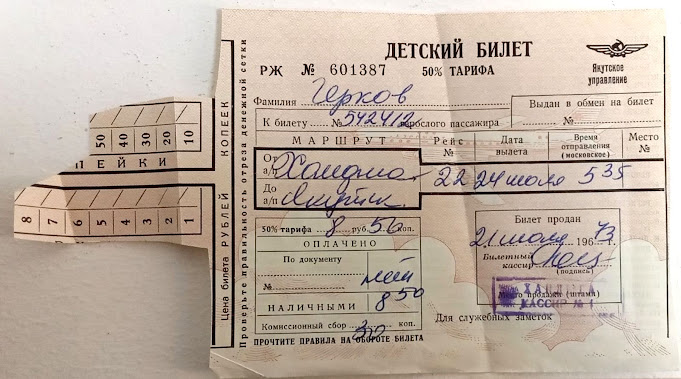 ДЕТСКИЙ БИЛЕТ
РЖ № 601387 50% ТАРИФА
Якутское
управление
Фамилия
К билету № 542412 взрослого пассажира
Выдан в обмен на билет
№
МАРШРУТ Рейс № Дата вылета Время отправления (московское) Место №
От а/п Хандыга 22 24 июля 5 35
До а/п Якутск
50% тарифа 8 руб. 50 коп.
ОПЛАЧЕНО
По документу
№
НАЛИЧНЫМИ 8 50
Комиссионный сбор коп.
ПРОЧТИТЕ ПРАВИЛА НА ОБОРОТЕ БИЛЕТА
Билет продан
21 июля 196 73
Билетный
кассир
(подпись)
ХАНДЫГА
Место продажи (штамп)
КАССИР № 1
Для служебных заметок
Проверьте правильность отреза денежной сетки
Цена билета РУБЛЕЙ КОПЕЕК
50 40 30 20 10
ПЕЙКИ
8 7 6 5 4 3 2 1